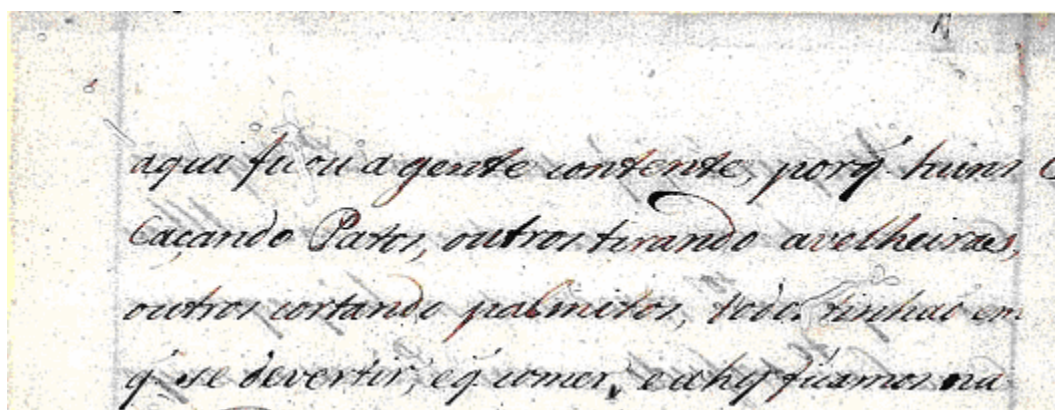 aqui ficou a gente contente, porq̃ huns
Caçando Patos, outros tirando avelheiras,
outros cortando palmitos, todos tinhaõ em
q̃ se devertir, e q̃ comer, e ahy ficamos na